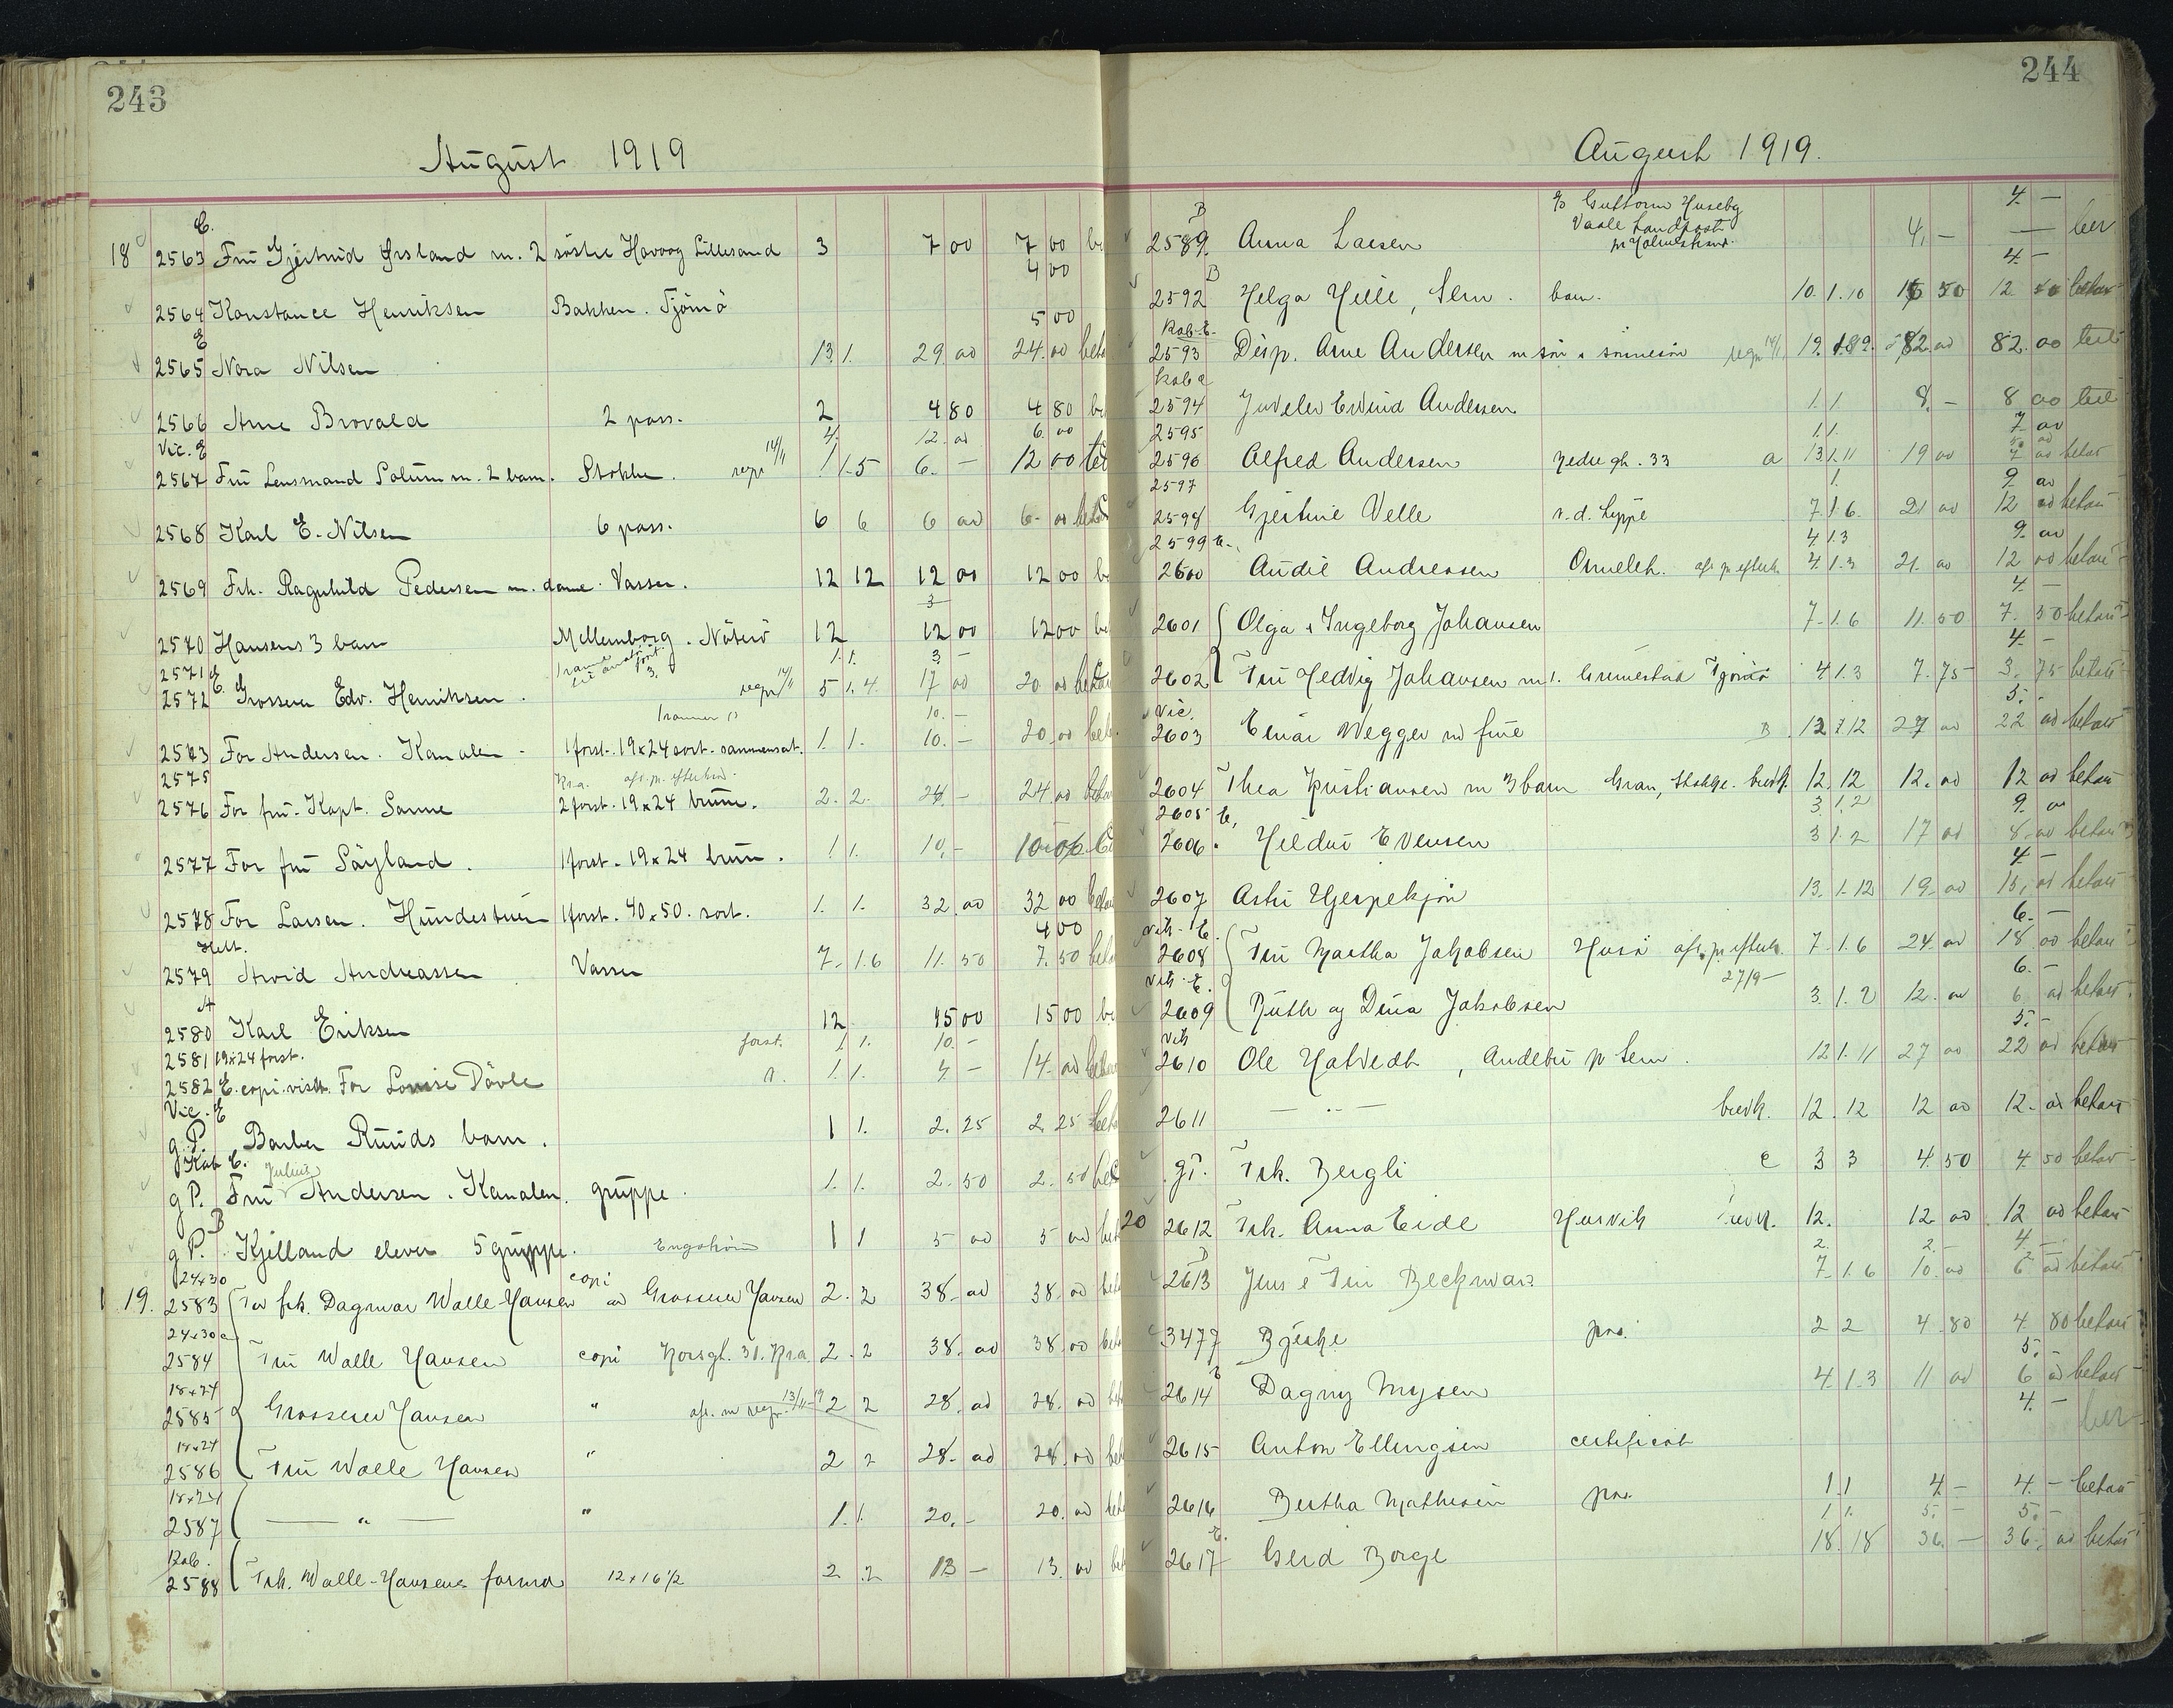 243
August 1919
E.
18 2563 Frú Gjertrud Ørsland m. 2 søstre Havoog Lillesand 3 7 00 7 00
4 00
2564 Konstance Henriksen Bakken. Tjömö
E 5 00
2565 Nora Nilsen 13 1. 29 00 24.00
2566 Arne Brovald 2 pass. 2 4 80 4 80
Vic. E 4. 12. 00 6. 00
2567 Frú Lensmand Solúm m. 2 barn. Stokke. regn 14/11 1 1.5 6. — 12 00
2568 Karl E. Nilsen 6 pass. 6 6 6 00 6- 00
2569 Frk. Ragnhild Pedersen m. dame. Vasser. 12 12 12 00 12 00
3-
2570 Hansens 3 barn Mellemborg. Nöterö 12 12 00 12 00
2571 E 1. 1. 3. —
2572 E. Grosserer Edv. Henriksen. regn 14/11 5 1.4. 17 00 20 00
1 ramme 10. —
2573 For Andersen. Kanalen - 1 forst. 19x24 sort. sammensat. 1. 1. 10. — 20 00
2575 Kra. afs. p. efterkrav.
2576 For frú Kapt. Sanne 2 forst. 19x24 brún. 2. 2. 24 — 24 00
2577 For frú Søyland. 1 forst. 19x24 brún. 1 1. 10. — 10 00
2578 For Larsen. Húndestúen 1 forst. 40x50. sort. 1. 1. 32. 00 32 00
Helt. 4 00
2579 Arvid Andreassen Vasser 7- 1.6 11. 50 7. 50
A
2580 Karl Eriksen 12 15 00 15 00
2581 19x24 forst. forst. 1. 1. 10. —
2582 E. copi. visit. For Lovise Dövle 1. 1. 4 — 14. 00
Vic. E
g.P. Barber Rúúds barn. 1 1. 2. 25 2. 25
Kab E. Julius
g P. Frú Andersen. Kanalen. grúppe. 1. 1. 2. 50 2. 50
B
g P. Kjelland elever 5 grúppe. Engström 1 1 5 00 5 00
24x30 copi
19. 2583 For frk. Dagmar Walle-Hansen av Grosserer Hansen 2. 2 38- 00 38. 00
24x30
2584 Frú Walle Hansen copi 2. 2 38. 00 38 00
18x24
2585 Grosserer Hansen " afs. m regn. 13/11-19 2 2 28. 00 28. 00
18x24
2586 Frú Walle Hansen " 2 2 28- 00 28. 00
18x24
2587 — " — " 1. 1. 20. — 20. 00
Kab.
2588 Frk. Walle-Hansens farmor 12x16 1/2 2 2 13 — 13. 00
244
August 1919.
B % Guttorm Huseby 4. —
2589 Anna Larsen Vaale Landpost 4. —
pr Holmestrand.
B 4. —
2592 Helga Hille, Sem. barn. 10. 1. 10 16 50 12 50 betalt
Kab. E.
2593 Disp. Arne Andersen m sön & sönnesön regn 14/11 19. 82. 00 82. 00
Kab a
2594 Júveler Erwind Andersen 1. 1. 8. — 8 00
2595 1. 1. 7 00
2596 Alfred Andersen Nedregt. 33 a 13 1. 11 19 00 betalt
2597 1. 9. 00
2598 Gjertine Velle 7. 1. 6. 21 00 12 00 betalt
2599 E. 4 1. 3 9. 00
2600 Aúdie Andressen afs. p. efterk. 4. 1. 3 21. 00 12 00 betalt
4. —
2601 Olga & Ingeborg Johansen 7- 1. 6 11. 50 7. 50 betalt
4. —
2602 Frú Hedvig Johansen m 1. Grimestad Tjömö 4 1. 3 7. 75 3. 75 betalt
Vic. 5. —
2603 Einar Wegger m frúe B 13 1. 12 27 00 22 00 betalt
2604 Thea Kristiansen m 3 barn Gran, Stokke. brevk. 12. 12 12. 00 12 00 betalt
2605 E, 3. 1. 2 9. 00
2606 Hildúr Evensen 3 1. 2 17 00 8- 00 betalt
4. —
2607 Astri Hjerpekjön 13. 1. 12 19- 00 15. 00 betalt
Vik. E. 6. —
2608 Frú Martha Jakobsen Húsö afs. p. efterk. 7- 1. 6 24. 00 18 00 betalt
Vik. E. 27/9- 6. —
2609 Rúth og Dina Jakobsen 3. 1. 2 12. 00 6 00 betalt
Vik 5. —
2610 Ole Hotvedt, Andebú p Sem. 12 1. 11 27 00 22 00 betalt
2611 — " — brevk. 12. 12 12 00 12. 00 betalt
gP. Frk. Bergli 3 3 4. 50 4 50 betalt
20 2612 Frk. Anna Eide Húsvik brevk. 12. 12 00 12 00 betalt
2. 2. — 4 —
2613 Jens & Frú Beckmark 7. 1. 6 10. 00 6 00 betalt
3477 Bjerke pas. 2 2 4. 80 4 80 betalt
5. —
2614 Dagny Mysen 4 1. 3 11 00 6 00 betalt
4. —
2615 Anton Ellingsen certifikat
2616 Bertha Mathisen pas. 1 1 4. — 4. — betalt
E. 1 1. 5. — 5. —
2617 Gerd Borge 18. 18 36. — 36. 00 betalt